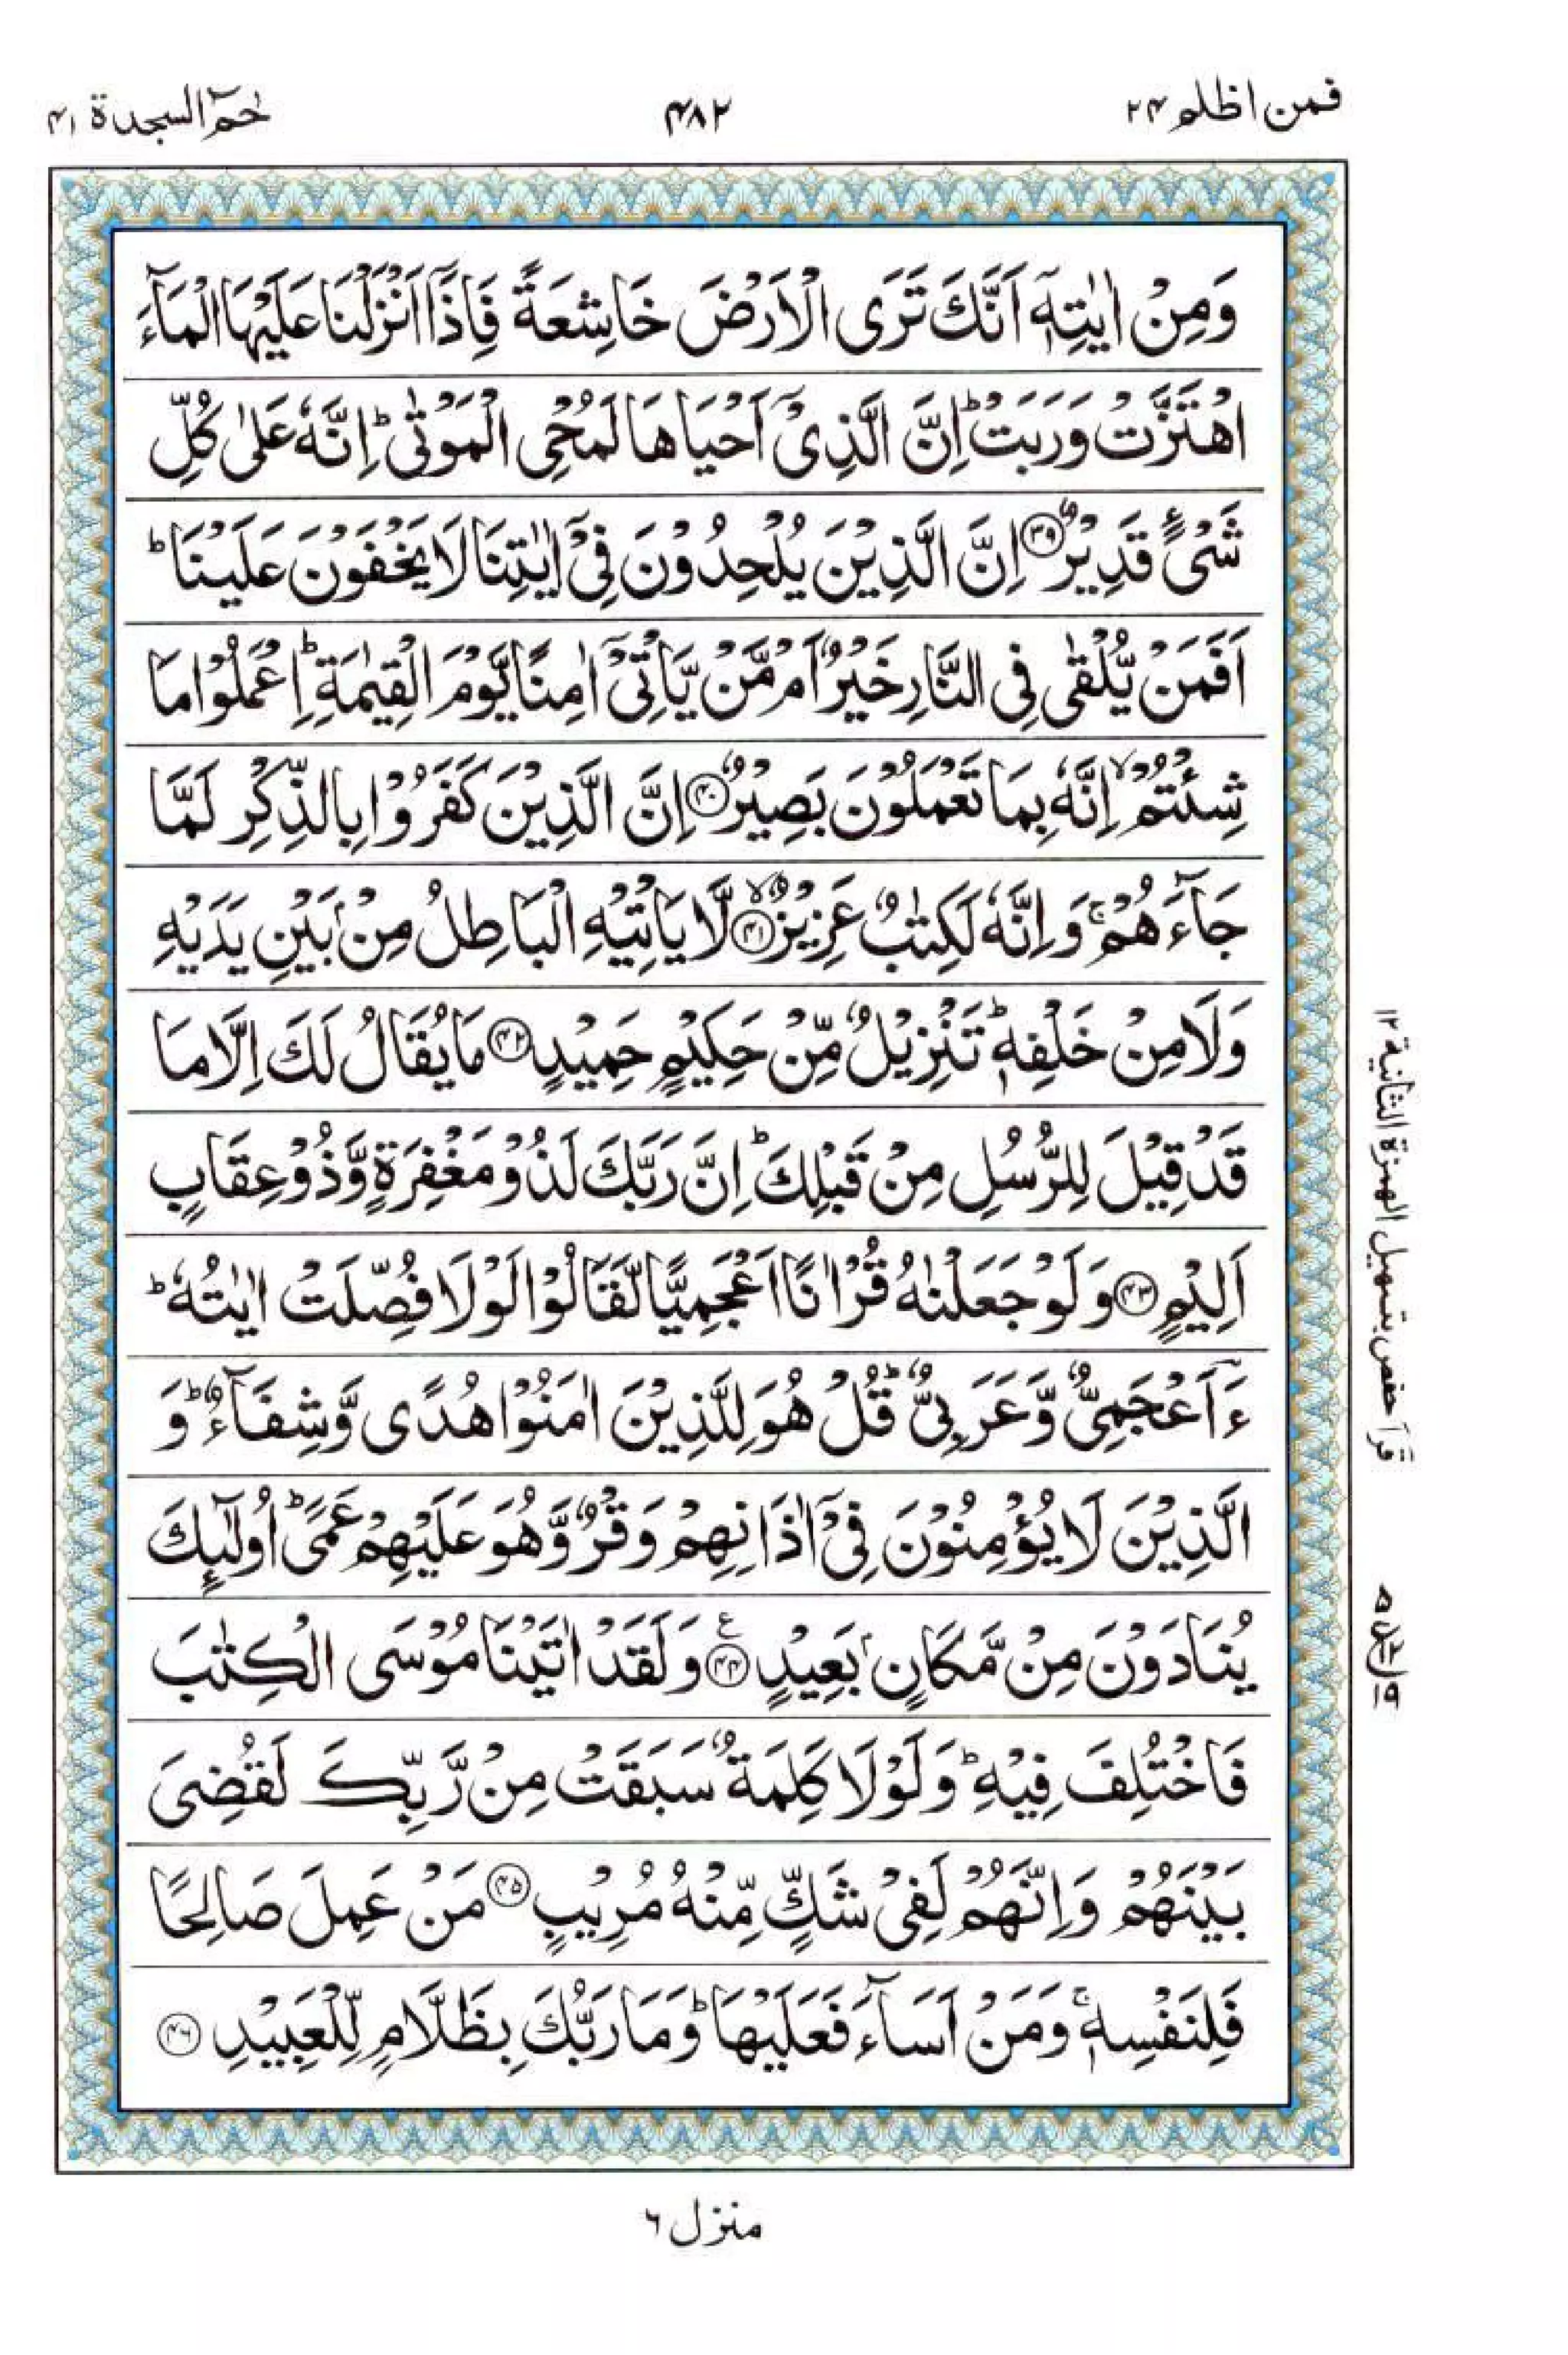 فمن اظلم ۲۴
۴۸۲
حٰمٓ السجدة ۴۱
وَمِنْ اٰيٰتِهٖٓ اَنَّكَ تَرَى الْاَرْضَ خَاشِعَةً فَاِذَآ اَنْزَلْنَا عَلَيْهَا الْمَآءَ
اهْتَزَّتْ وَرَبَتْ ؕ اِنَّ الَّذِیْۤ اَحْيَاهَا لَمُحْیِ الْمَوْتٰی ؕ اِنَّهٗ عَلٰی كُلِّ
شَیْءٍ قَدِيْرٌ ﴿۳۹﴾ اِنَّ الَّذِيْنَ يُلْحِدُوْنَ فِیْۤ اٰيٰتِنَا لَا يَخْفَوْنَ عَلَيْنَا ؕ
اَفَمَنْ يُّلْقٰی فِی النَّارِ خَيْرٌ اَمْ مَّنْ يَّاْتِیْۤ اٰمِنًا يَّوْمَ الْقِيٰمَةِ ؕ اِعْمَلُوْا مَا
شِئْتُمْ ۙ اِنَّهٗ بِمَا تَعْمَلُوْنَ بَصِيْرٌ ﴿۴۰﴾ اِنَّ الَّذِيْنَ كَفَرُوْا بِالذِّكْرِ لَمَّا
جَآءَهُمْ ۚ وَاِنَّهٗ لَكِتٰبٌ عَزِيْزٌ ﴿۴۱﴾ۙ لَّا يَاْتِيْهِ الْبَاطِلُ مِنْۢ بَيْنِ يَدَيْهِ
وَلَا مِنْ خَلْفِهٖ ؕ تَنْزِيْلٌ مِّنْ حَكِيْمٍ حَمِيْدٍ ﴿۴۲﴾ مَا يُقَالُ لَكَ اِلَّا مَا
قَدْ قِيْلَ لِلرُّسُلِ مِنْ قَبْلِكَ ؕ اِنَّ رَبَّكَ لَذُوْ مَغْفِرَةٍ وَّذُوْ عِقَابٍ
اَلِيْمٍ ﴿۴۳﴾ وَلَوْ جَعَلْنٰهُ قُرْاٰنًا اَعْجَمِيًّا لَّقَالُوْا لَوْلَا فُصِّلَتْ اٰيٰتُهٗ ؕ
ءَاَعْجَمِیٌّ وَّعَرَبِیٌّ ؕ قُلْ هُوَ لِلَّذِيْنَ اٰمَنُوْا هُدًی وَّشِفَآءٌ ؕ وَ
الَّذِيْنَ لَا يُؤْمِنُوْنَ فِیْۤ اٰذَانِهِمْ وَقْرٌ وَّهُوَ عَلَيْهِمْ عَمًی ؕ اُولٰٓئِكَ
يُنَادَوْنَ مِنْ مَّكَانٍۭ بَعِيْدٍ ﴿۴۴﴾ ع وَلَقَدْ اٰتَيْنَا مُوْسَی الْكِتٰبَ
فَاخْتُلِفَ فِيْهِ ؕ وَلَوْلَا كَلِمَةٌ سَبَقَتْ مِنْ رَّبِّكَ لَقُضِیَ
بَيْنَهُمْ وَاِنَّهُمْ لَفِیْ شَكٍّ مِّنْهُ مُرِيْبٍ ﴿۴۵﴾ مَنْ عَمِلَ صَالِحًا
فَلِنَفْسِهٖ ۚ وَمَنْ اَسَآءَ فَعَلَيْهَا ؕ وَمَا رَبُّكَ بِظَلَّامٍ لِّلْعَبِيْدِ ﴿۴۶﴾
قرأ حفص بتسهيل الهمزة الثانية ۱۲
منزل ۶